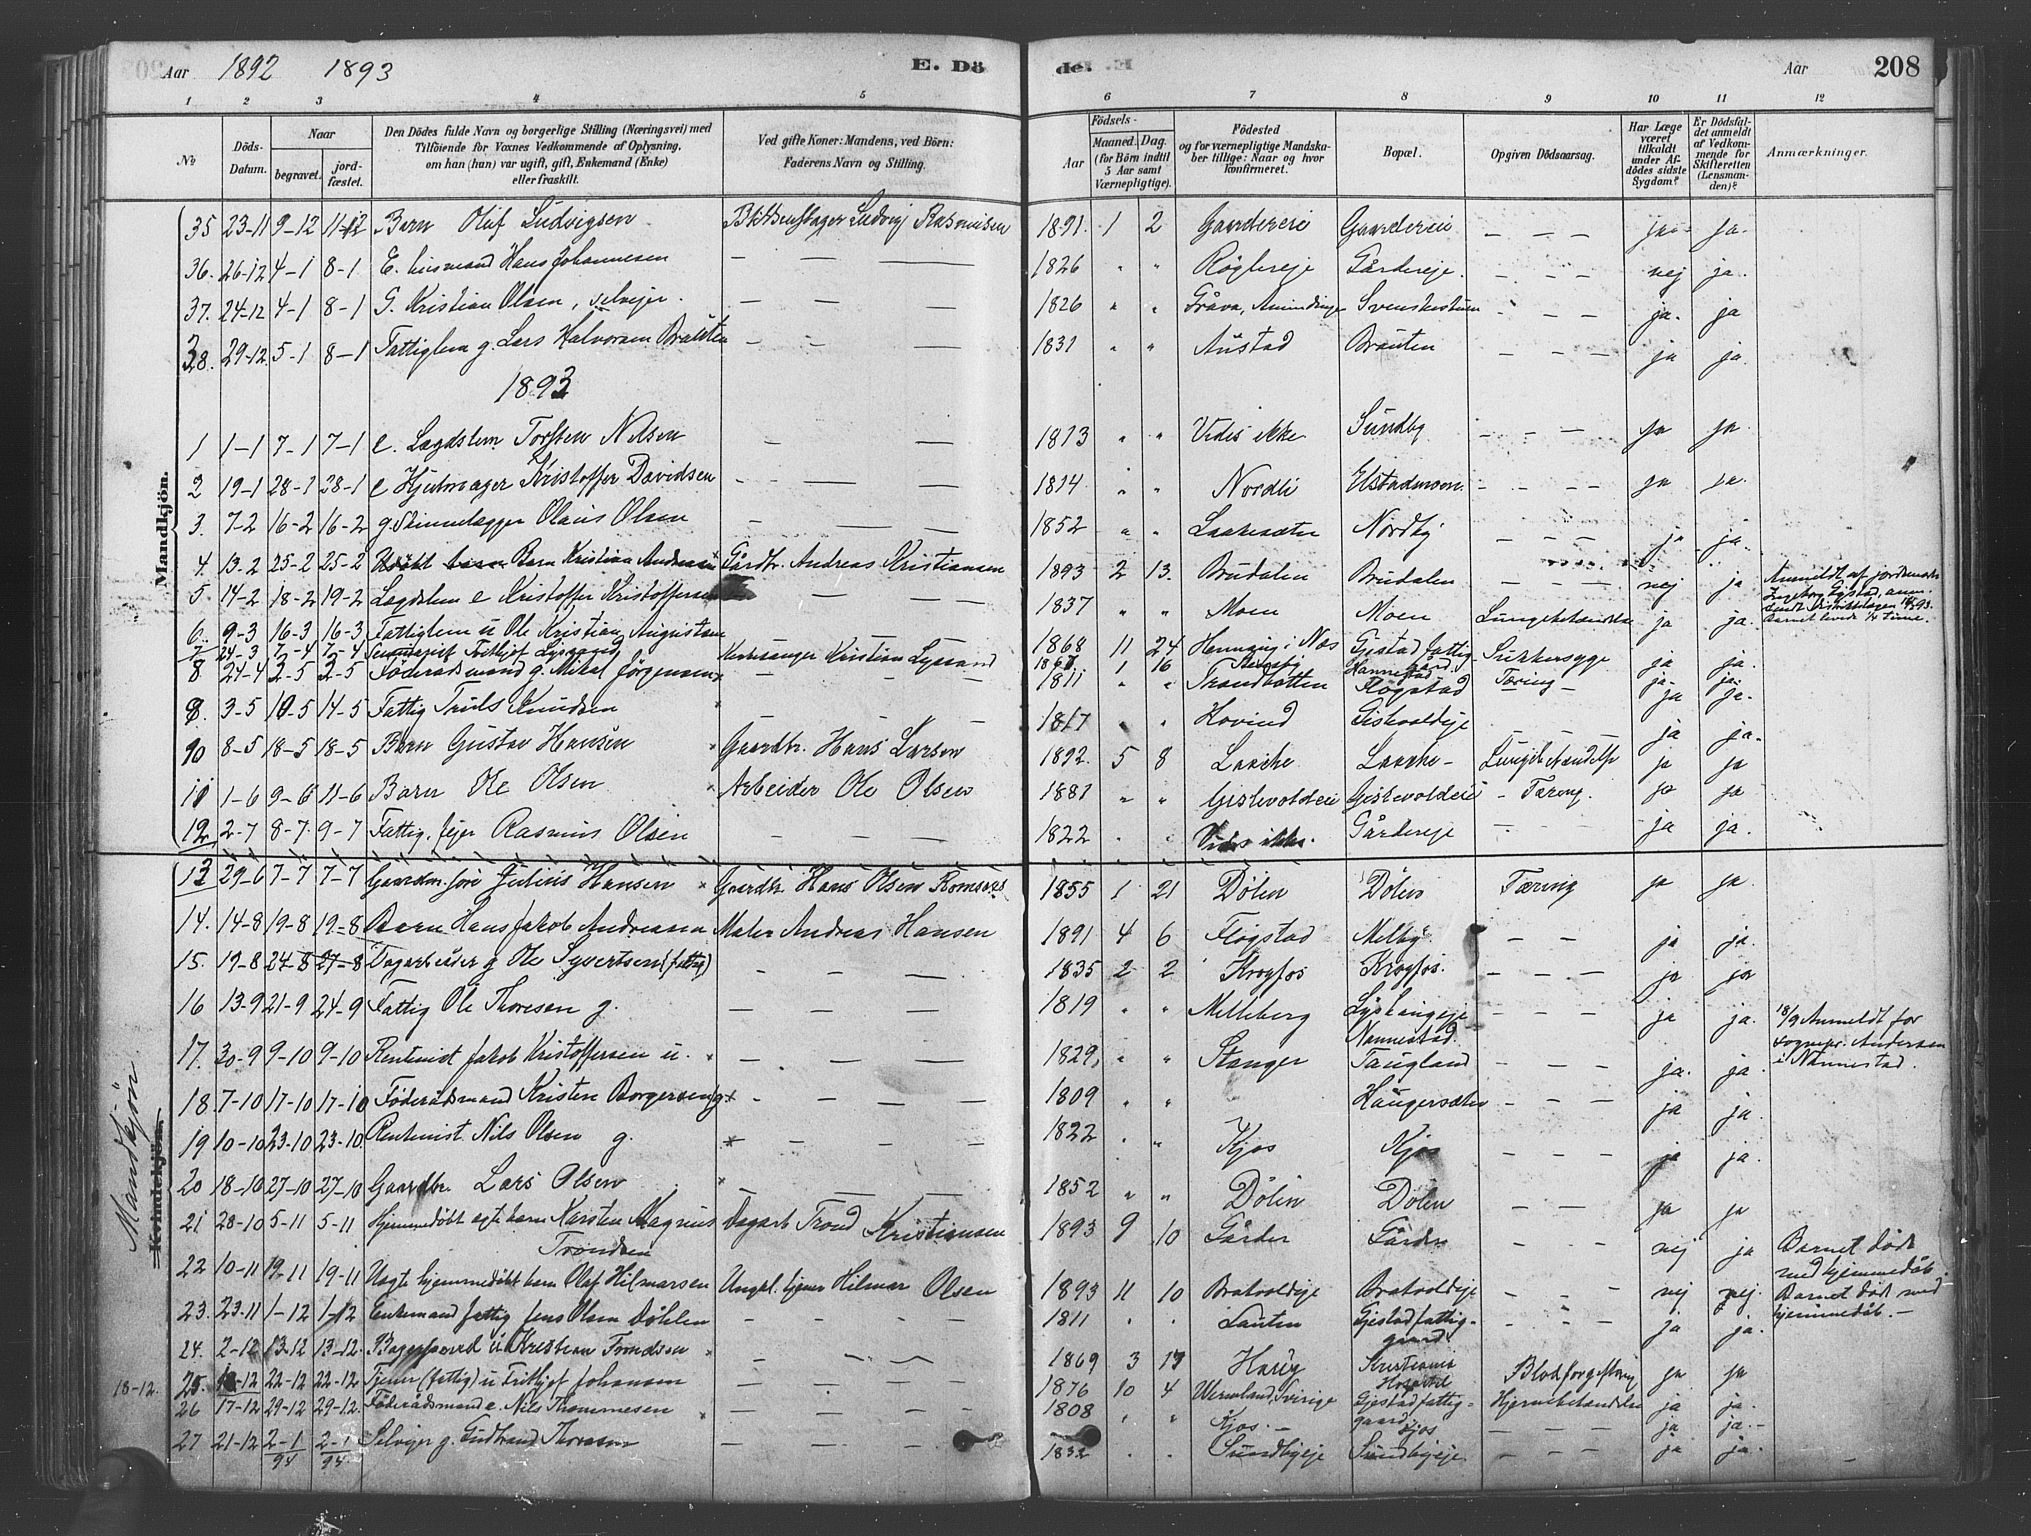 Aar 1892 1893 E. Dö de. Aar 208
1 2 3 4 5 6 7 8 9 10 11 12
No
Döds-Datum.
Naar
begravet.
jord-fæstet.
Den Dödes fulde Navn og borgerlige Stilling (Næringsvei) med
Tilföiende for Voxnes Vedkommende af Oplysning,
om han (hun) var ugift, gift, Enkemand (Enke)
eller fraskilt.
Ved gifte Koner: Mandens, ved Börn:
Faderens Navn og Stilling.
Födsels-
Aar
Maaned. Dag.
(for Börn indtil
5 Aar samt
Værnepligtige).
Födested
og for værnepligtige Mandska-
ber tillige: Naar og hvor
konfirmeret.
Bopæl.
Opgiven Dödsaarsag.
Har Læge
været
tilkaldt
under Af-
dödes sidste
Sygdom?
Er Dödsfal-
det anmeldt
af Vedkom-
mende for
Skifteretten
(Lensman-
den)?
Anmærkninger.
Mandkjön.
35 23-11 9-12 11-12 Barn Oluf Ludvigsen Ludvig Rasmussen 1891 1 2 Gaardereie Gaardereie — — — ja ja
36. 26-12 4-1 8-1 E. husmand Hans Johannesen — — — 1826 " " Röglereje Gårdereje. nej ja.
37. 24-12 4-1 8-1 G. Kristian Olsen, selvejer. — — — 1826 " " Gråva, Svenskestuen — — — ja. ja
38. 29-12 5-1 8-1 Fattiglem g. Lars Halvorsen Bråten — — — 1831 " " Austad Bråten — — — ja ja.
1893
1 1-1 7-1 7-1 e. Lægdslem Torsten Nilsen — — — 1813 " " Vides ikke Sundby — — — ja ja.
2 19-1 28-1 28-1 e Hjulmager Kristoffer Davidsen — — — 1814 " " Nordli — — — ja ja.
3. 7-2 16-2 16-2 g. Olaus Olsen — — — 1852 " " Laakesæter Nordby — — — ja ja.
4. 13-2 25-2 25-2 Barn Kristian Andreasen Gårdbr. Andreas Kristiansen 1893 2 13. Brudalen Brudalen — — — nej ja Anmeldt af jordemoder
5. 14-2 18-2 19-2 Lægdslem e Kristoffer Kristoffersen — — 1837 " " Moen Moen Lungebetændelse ja ja. Ingeborg Gjestad,
Barnet levede ¼ time.
6. 9-3 16-3 16-3 Fattiglem u Ole Kristian Augustsen 1868 11 24 i Næs Gjestad fattig-gård Sukkersyge ja ja.
7 24-3 7-4 7-4 Seminarist Fritjof Lysaand Kirkesanger Kristian Lysaand 1867 1 16 Tæring ja. ja.
8 24-4 2-5 2-5 Föderaadsmand g. Mikal Jörgensen — — — 1811 " " Trandbotten Rogstad — ja ja.
9. 3-5 10-5 14-5 Fattig Truls Knudsen — 1817 " " Hovind Gislevoldeje ja ja.
10 8-5 18-5 18-5 Barn Gustav Hansen Gaardbr. Hans Larsen 1892. 5 8 Laache Laache Lungebetændelse ja ja
11 1-6 9-6 11-6 Barn Ole Olsen Arbeider Ole Olsen 1881 " " Gislevoldeie Gislevoldeie Tæring. ja ja
12 2-7 8-7 9-7 Fattig. Rasmus Olsen — — — 1822 " " Vides ikke. Gårdereje — — — ja ja.
13 29-6 7-7 7-7 Julius Hansen Gaardbr. Hans Olsen 1855 1 21 Dölen Dölen Tæring ja ja.
14. 14-8 19-8 19-8 Barn Hans Jakob Andreasen Maler Andreas Hansen 1891 4 6 Flögstad Melby — — ja ja.
15. 19-8 24-8 27-8 Dagarbeider g Ole Syvertsen (fattig) — — — 1835 2 2 Krogfos Krogfos. — — — ja ja
16 13-9 21-9 24-9 Fattig Ole Thoresen g. — — — 1819 " " Melleberg Nannestad. — — — ja ja. 18/9 Anmeldt for
sognepr. Andersen
i Nannestad.
17. 30-9 9-10 9-10 Rentenist Jakob Kristoffersen u. — — — 1829, " " Stanger Taugland — — — ja. ja.
18. 7-10 17-10 17-10 Föderådsmand Kristen Borgersen g — — — 1809 " " Haugersæter — — — ja ja.
19 10-10 23-10 23-10 Rentenist Nils Olsen g. — — — 1822 " " Kjos Kjos — — — ja ja.
20 18-10 27-10 27-10 Gaardbr. Lars Olsen — — — 1852 " " Dölin Dölen — — — ja ja
21 28-10 5-11 5-11 Hjemmedöbt ægte barn Karsten Magnus
Trondsen Dagarb. Trond Kristiansen 1893 9 10 Gårder Gårder — — — nej ja Barnet döbt
ved hjemmedåb.
22 10-11 19-11 19-11 Uægte hjemmedöbt barn Olaf Hilmarsen Ungkl. Hilmar Olsen 1893 11 10 Bratvoldeje Bratvoldeje — — — nej nej. Barnet döbt ved
hjemmedåb. —
23. 23-11 1-12 1-12 Enkemand fattig Jens Olsen Döhlen — — — 1811 " " Lauten Gjestad fattig-
gaard — — — ja ja.
24. 2-12 13-12 13-12. u Kristian Trondsen — — — 1869 3 17 Kristiania
Hospital Blodforgiftning ja ja
18-12. 25. 22-12 22-12 Tjener (fattig) u Frithjof Johansen — — — 1876 10 4 Wermland, Sverige Gjestad fattig-
gaard Hjernebetændelse ja ja.
26 17-12 29-12 29-12. Föderådsmand e. Nils Thommesen — — — 1808 " " Kjos. — Kjos — — — ja ja.
27 21-12 2-1/94 2-1/94 Selvejer g. Gudbrand Thoresen — — — 1832 " " Sundbyeje Sundbyeje — — — ja ja.
Mandkjön
Kvindekjön.